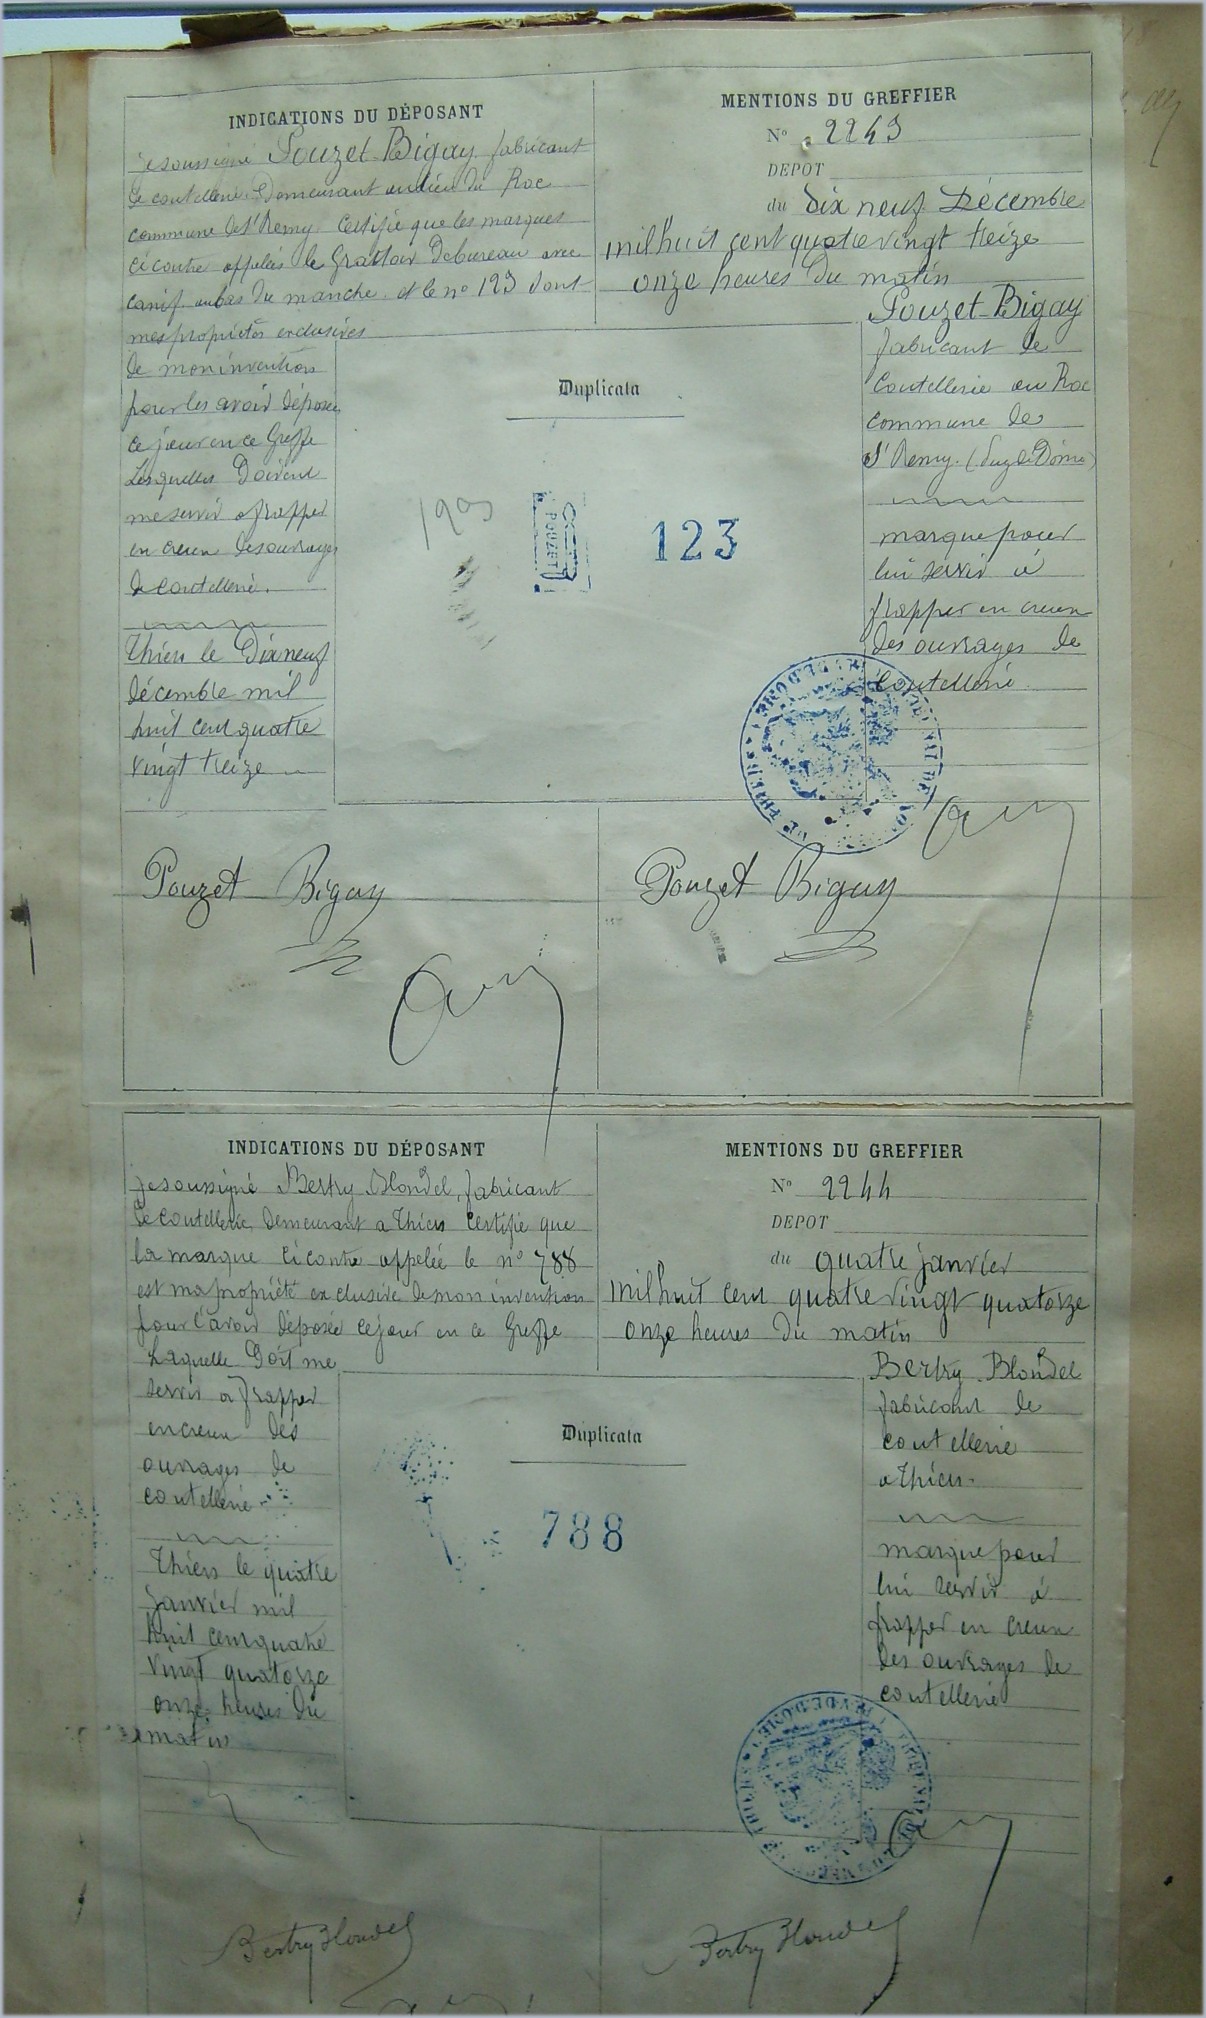 INDICATIONS DU DÉPOSANT
Je soussigné Pouzet-Bigay fabricant
de coutellerie Demeurant au lieu du Roc
commune de St Remy Certifie que les marques
ci contre appelées le Grattoir De bureau avec
canif au bas du manche et le no 123 dont
mes propriétés exclusives
de mon invention
pour les avoir déposées
ce jour en ce Greffe
Lesquelles Doivent
me servir a frapper
en creux des ouvrages
de coutellerie.
Thiers le Dix neuf
décembre mil
huit cent quatre
vingt treize
MENTIONS DU GREFFIER
No 2243
DEPOT
du dix neuf Décembre
mil huit cent quatre vingt treize
onze heures du matin
Pouzet-Bigay
fabricant de
Coutellerie au Roc
commune de
St Remy. (Puy de Dôme)
marque pour
lui servir à
frapper en creux
des ouvrages de
Coutellerie
Duplicata
123
POUZET
123
Pouzet Bigay
Pouzet Bigay
INDICATIONS DU DÉPOSANT
Je soussigné Bertry Blondel, fabricant
de coutellerie, demeurant a Thiers certifie que
la marque ci contre appelée le no 788
est ma propriété exclusive de mon invention
pour l'avoir déposée ce jour en ce Greffe
Laquelle doit me
servir a frapper
en creux des
ouvrages de
coutellerie
Thiers le quatre
janvier mil
huit cent quatre
vingt quatorze
onze heures du
matin
MENTIONS DU GREFFIER
No 2244
DEPOT
du quatre janvier
mil huit cent quatre vingt quatorze
onze heures du matin
Bertry Blondel
fabricant de
coutellerie
a Thiers.
marque pour
lui servir à
frapper en creux
des ouvrages de
coutellerie
Duplicata
788
Bertry Blondel
Bertry Blondel